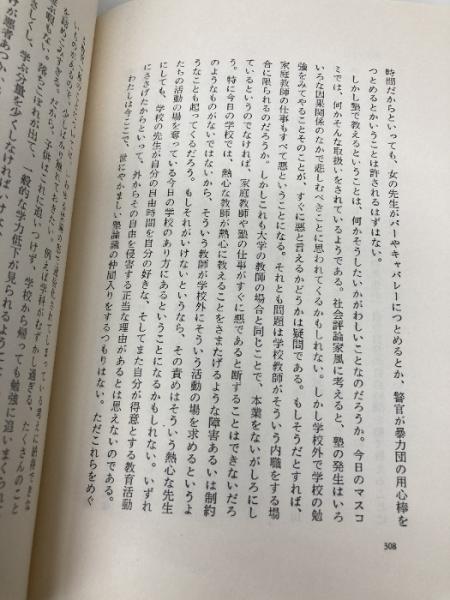 時間だからといっても、女の先生がバーやキャバレーにつとめるとか、警官が暴力団の用心棒を
つとめるとかいうことは許されるはずはない。
しかし塾で教えるということは、何かそうしたいかがわしいことなのだろうか。今日のマスコ
ミでは、何かそんな取扱いをされているようである。社会評論家風に考えると、塾の発生はいろ
いろな因果関係のなかで悲しむべきことに思われてくるかもしれない。しかし学校外で学校の勉
強をみてやることそのことが、すぐに悪と言えるかどうかは疑問である。もしそうだとすれば、
家庭教師の仕事もすべて悪ということになる。それとも問題は学校教師がそういう内職をする場
合に限られるのだろうか。しかしこれも大学の教師の場合と同じことで、本業をないがしろにし
ているというのでなければ、家庭教師や塾の仕事がすぐに悪であると断ずることはできないだろ
う。特に今日の学校では、熱心な教師が熱心に教えることをさまたげるような障害あるいは制約
のようなものがないではないから、そういう教師が学校外にそういう活動の場を求めるというよ
うなことも起ってくるだろう。もしそれがいけないというなら、その責めはそういう熱心な先生
たちの活動の場を奪っている今日の学校のあり方にあるということになるかもしれない。いずれ
にしても、学校の先生が自分の自由時間を自分の好きな、そしてまた自分が得意とする教育活動
にささげたからといって、外からその自由を侵害する正当な理由があるとは思えないのである。
わたしは今ここで、世にやかましい塾論議の仲間入りをするつもりはない。ただこれらをめぐ
508
例えば学科がむつかし過ぎる、たくさんのこと
だから、子供はそれに追いつけず、学校から帰っても勉強に追いまくられ
落ちこぼれが出て、一般的な学力低下が見られるように
さして、学ぶ分量を少くしなければいけない